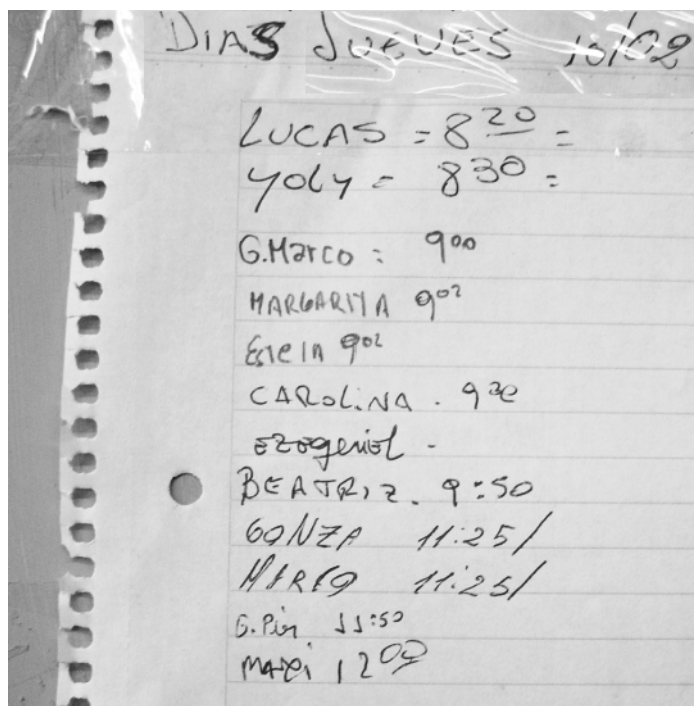 DIAS JUEVES 10/02
LUCAS = 8 20 =
YOLY = 830 =
G.Marco : 900
MARGARITA 902
Estela 902
CAROLINA . 930
BEATRIZ . 9:50
GONZA 11:25/
MARIO 11:25/
G. 11:50
MAXI 1200